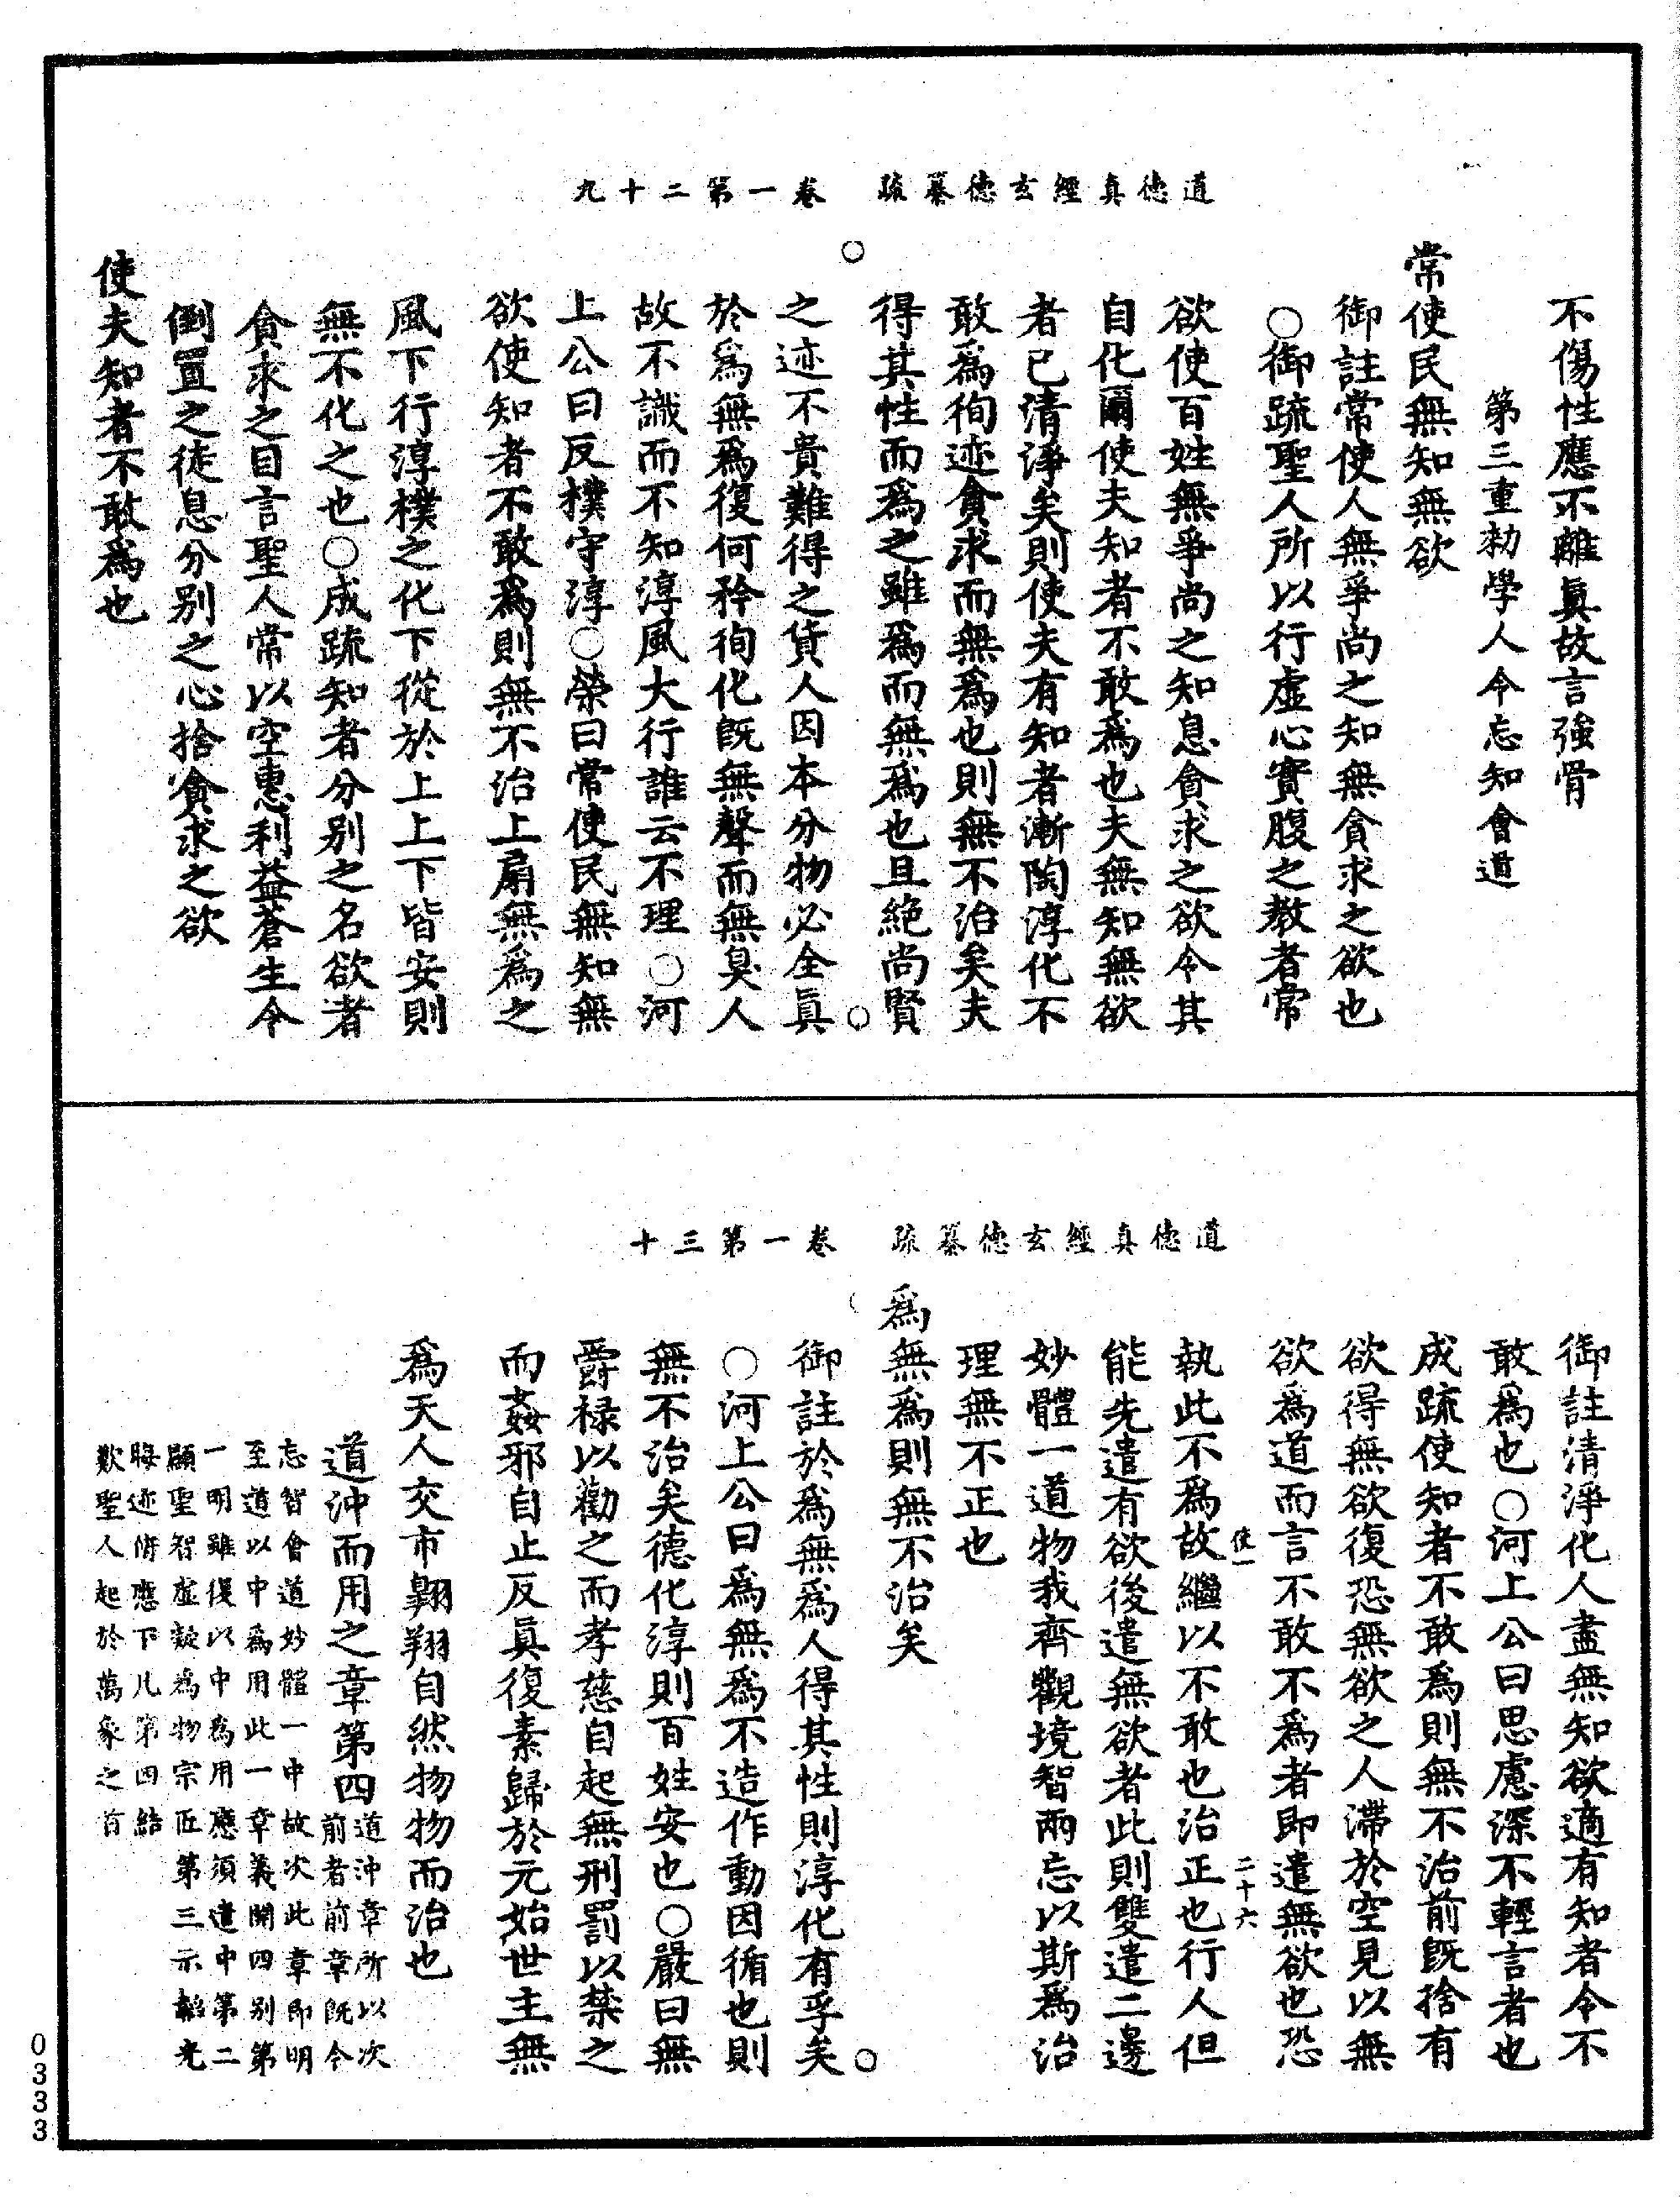 道德真經玄德纂疏　卷一第二十九
不傷性應不離眞故言強骨
第三重勑學人令忘知會道
常使民無知無欲
御註常使人無爭尚之知無貪求之欲也
○御疏聖人所以行虛心實腹之教者常
欲使百姓無爭尚之知息貪求之欲令其
自化爾使夫知者不敢爲也夫無知無欲
者已清淨矣則使夫有知者漸陶淳化不
敢爲徇迹貪求而無爲也則無不治矣夫
得其性而爲之雖爲而無爲也且絶尚賢
之迹不貴難得之貨人因本分物必全眞
於爲無爲復何矜徇化旣無聲而無臭人
故不識而不知淳風大行誰云不理○河
上公曰反樸守淳○榮曰常使民無知無
欲使知者不敢爲則無不治上扇無爲之
風下行淳樸之化下從於上上下皆安則
無不化之也○成疏知者分别之名欲者
貪求之目言聖人常以空惠利益蒼生令
倒置之徒息分别之心捨貪求之欲
使夫知者不敢爲也
道德真經玄德纂疏　卷一第三十
御註清淨化人盡無知欲適有知者令不
敢爲也○河上公曰思慮深不輕言者也
成疏使知者不敢爲則無不治前旣捨有
欲得無欲復恐無欲之人滯於空見以無
欲爲道而言不敢不爲者即遣無欲也恐
使一　二十六
執此不爲故繼以不敢也治正也行人但
能先遣有欲後遣無欲者此則雙遣二邊
妙體一道物我齊觀境智兩忘以斯爲治
理無不正也
爲無爲則無不治矣
御註於爲無爲人得其性則淳化有孚矣
○河上公曰爲無爲不造作動因循也則
無不治矣德化淳則百姓安也○嚴曰無
爵祿以勸之而孝慈自起無刑罰以禁之
而姦邪自止反眞復素歸於元始世主無
爲天人交市翺翔自然物物而治也
道沖而用之章第四
道沖章所以次
前者前章旣令
忘智會道妙體一中故次此章即明
至道以中爲用此一章義開四别第
一明雖復以中爲用應須遣中第二
顯聖智虛凝爲物宗匠第三示韜光
晦迹俯應下凡第四結
歎聖人起於萬象之首
0333